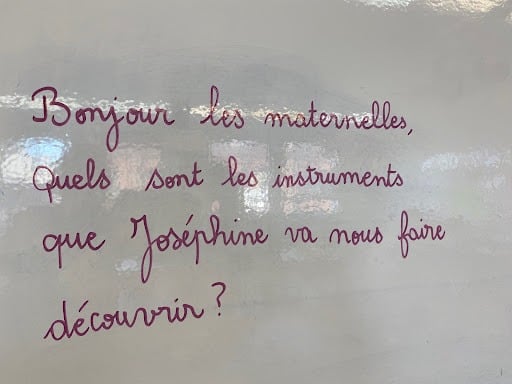 Bonjour les maternelles,
Quels sont les instruments
que Joséphine va nous faire
découvrir ?